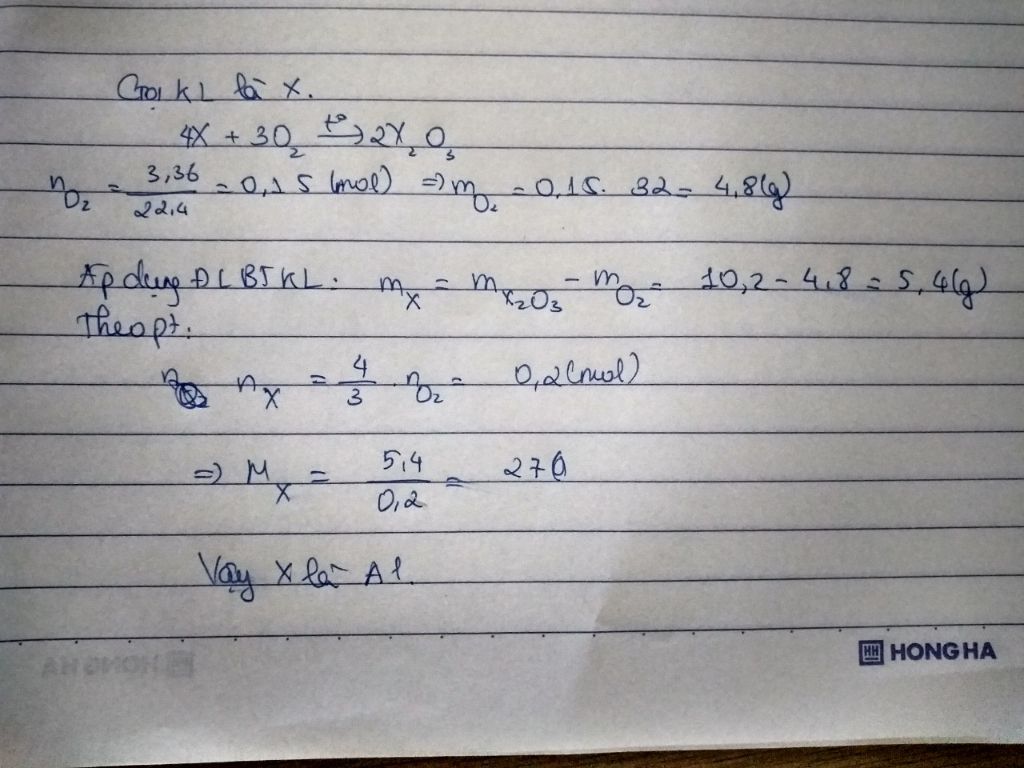 Gọi KL là X.
4X + 3O₂ →(t°) 2X₂O₃
n_O₂ = 3,36/22,4 = 0,15 (mol) ⇒ m_O₂ = 0,15. 32 = 4,8(g)
Áp dụng ĐLBTKL: m_X = m_X₂O₃ - m_O₂ = 10,2 - 4,8 = 5,4(g)
Theo pt:
n_X = 4/3 . n_O₂ = 0,2 (mol)
⇒ M_X = 5,4/0,2 = 27
Vậy X là Al.
HH HONG HA